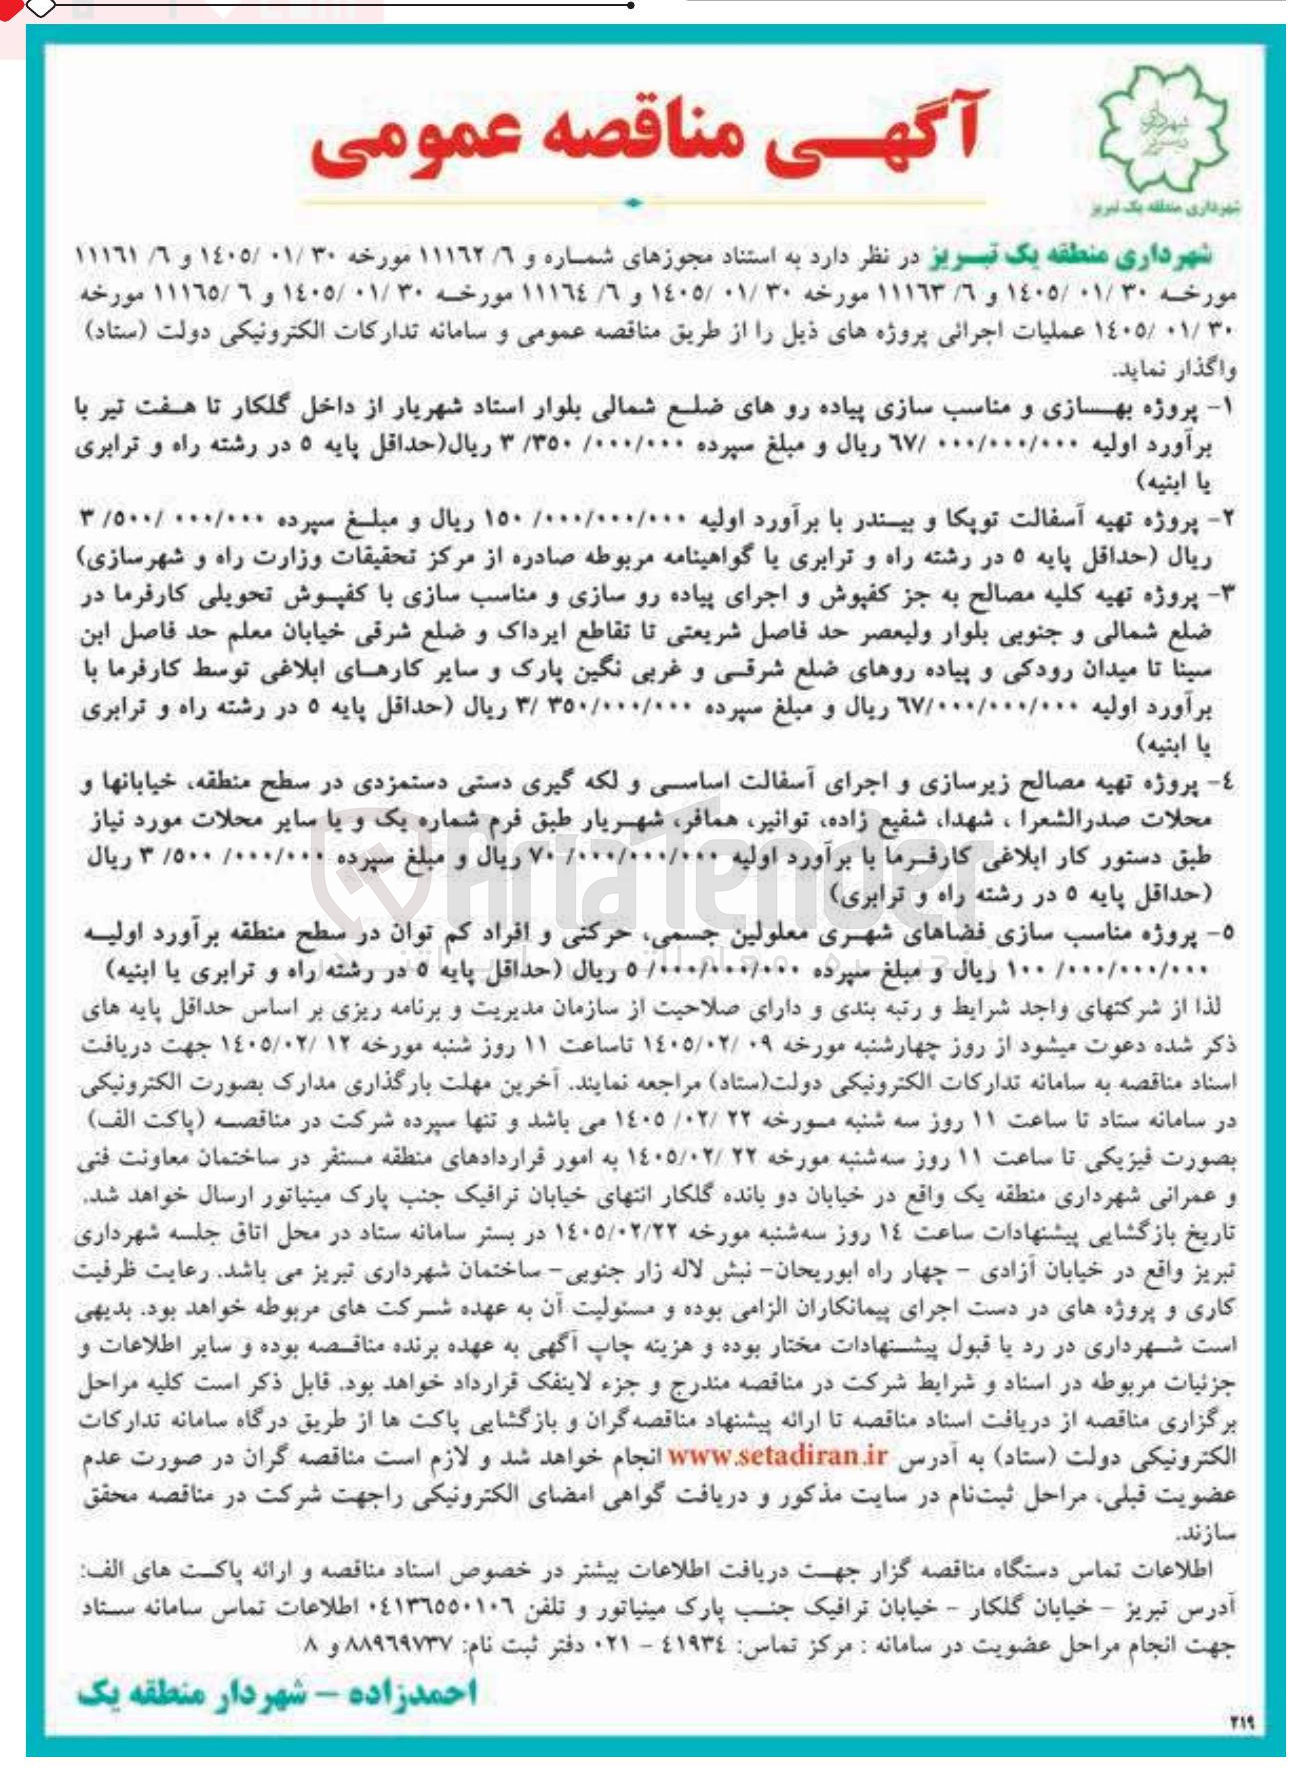 آگهی مناقصه عمومی
شهرداری تبریز
شهرداری منطقه یک تبریز
شهرداری منطقه یک تبریز در نظر دارد به استناد مجوزهای شماره و ٦/ ١١١٦٢ مورخه ٣٠ /٠١ /١٤٠٥ و ٦/ ١١١٦١
مورخه ٣٠ /٠١ /١٤٠٥ و ٦/ ١١١٦٣ مورخه ٣٠ /٠١ /١٤٠٥ و ٦/ ١١١٦٤ مورخه ٣٠ /٠١ /١٤٠٥ و ٦/ ١١١٦٥ مورخه
٣٠ /٠١ /١٤٠٥ عملیات اجرائی پروژه های ذیل را از طریق مناقصه عمومی و سامانه تدارکات الکترونیکی دولت (ستاد)
واگذار نماید.
١- پروژه بهسازی و مناسب سازی پیاده رو های ضلع شمالی بلوار استاد شهریار از داخل گلکار تا هفت تیر با
برآورد اولیه ٦٧/ ٠٠٠/٠٠٠/٠٠٠ ریال و مبلغ سپرده ٣ /٣٥٠ /٠٠٠/٠٠٠ ریال(حداقل پایه ٥ در رشته راه و ترابری
یا ابنیه)
٢- پروژه تهیه آسفالت توپکا و بیندر با برآورد اولیه ١٥٠ /٠٠٠/٠٠٠/٠٠٠ ریال و مبلغ سپرده ٣ /٥٠٠/ ٠٠٠/٠٠٠
ریال (حداقل پایه ٥ در رشته راه و ترابری یا گواهینامه مربوطه صادره از مرکز تحقیقات وزارت راه و شهرسازی)
٣- پروژه تهیه کلیه مصالح به جز کفپوش و اجرای پیاده رو سازی و مناسب سازی با کفپوش تحویلی کارفرما در
ضلع شمالی و جنوبی بلوار ولیعصر حد فاصل شریعتی تا تقاطع ایرداک و ضلع شرقی خیابان معلم حد فاصل ابن
سینا تا میدان رودکی و پیاده روهای ضلع شرقی و غربی نگین پارک و سایر کارهای ابلاغی توسط کارفرما با
برآورد اولیه ٦٧/٠٠٠/٠٠٠/٠٠٠ ریال و مبلغ سپرده ٣/ ٣٥٠/٠٠٠/٠٠٠ ریال (حداقل پایه ٥ در رشته راه و ترابری
یا ابنیه)
٤- پروژه تهیه مصالح زیرسازی و اجرای آسفالت اساسی و لکه گیری دستی دستمزدی در سطح منطقه، خیابانها و
محلات صدرالشعرا ، شهدا، شفیع زاده، توانیر، همافر، شهریار طبق فرم شماره یک و یا سایر محلات مورد نیاز
طبق دستور کار ابلاغی کارفرما با برآورد اولیه ٧٠ /٠٠٠/٠٠٠/٠٠٠ ریال و مبلغ سپرده ٣ /٥٠٠ /٠٠٠/٠٠٠ ریال
(حداقل پایه ٥ در رشته راه و ترابری)
AriaTender
٥- پروژه مناسب سازی فضاهای شهری معلولین جسمی، حرکتی و افراد کم توان در سطح منطقه برآورد اولیه
١٠٠ /٠٠٠/٠٠٠/٠٠٠ ریال و مبلغ سپرده ٥ /٠٠٠/٠٠٠/٠٠٠ ریال (حداقل پایه ٥ در رشته راه و ترابری یا ابنیه)
لذا از شرکتهای واجد شرایط و رتبه بندی و دارای صلاحیت از سازمان مدیریت و برنامه ریزی بر اساس حداقل پایه های
ذکر شده دعوت میشود از روز چهارشنبه مورخه ٠٩ /١٤٠٥/٠٢ تاساعت ١١ روز شنبه مورخه ١٢ /١٤٠٥/٠٢ جهت دریافت
اسناد مناقصه به سامانه تدارکات الکترونیکی دولت(ستاد) مراجعه نمایند. آخرین مهلت بارگذاری مدارک بصورت الکترونیکی
در سامانه ستاد تا ساعت ١١ روز سه شنبه مورخه ٢٢ /٠٢/ ١٤٠٥ می باشد و تنها سپرده شرکت در مناقصه (پاکت الف)
بصورت فیزیکی تا ساعت ١١ روز سه‌شنبه مورخه ٢٢ /١٤٠٥/٠٢ به امور قراردادهای منطقه مستقر در ساختمان معاونت فنی
و عمرانی شهرداری منطقه یک واقع در خیابان دو بانده گلکار انتهای خیابان ترافیک جنب پارک مینیاتور ارسال خواهد شد.
تاریخ بازگشایی پیشنهادات ساعت ١٤ روز سه‌شنبه مورخه ١٤٠٥/٠٢/٢٢ در بستر سامانه ستاد در محل اتاق جلسه شهرداری
تبریز واقع در خیابان آزادی - چهار راه ابوریحان- نبش لاله زار جنوبی- ساختمان شهرداری تبریز می باشد. رعایت ظرفیت
کاری و پروژه های در دست اجرای پیمانکاران الزامی بوده و مسئولیت آن به عهده شرکت های مربوطه خواهد بود. بدیهی
است شهرداری در رد یا قبول پیشنهادات مختار بوده و هزینه چاپ آگهی به عهده برنده مناقصه بوده و سایر اطلاعات و
جزئیات مربوطه در اسناد و شرایط شرکت در مناقصه مندرج و جزء لاینفک قرارداد خواهد بود. قابل ذکر است کلیه مراحل
برگزاری مناقصه از دریافت اسناد مناقصه تا ارائه پیشنهاد مناقصه‌گران و بازگشایی پاکت ها از طریق درگاه سامانه تدارکات
الکترونیکی دولت (ستاد) به آدرس www.setadiran.ir انجام خواهد شد و لازم است مناقصه گران در صورت عدم
عضویت قبلی، مراحل ثبت‌نام در سایت مذکور و دریافت گواهی امضای الکترونیکی راجهت شرکت در مناقصه محقق
سازند.
اطلاعات تماس دستگاه مناقصه گزار جهت دریافت اطلاعات بیشتر در خصوص اسناد مناقصه و ارائه پاکت های الف:
آدرس تبریز - خیابان گلکار - خیابان ترافیک جنب پارک مینیاتور و تلفن ٠٤١٣٦٥٥٠١٠٦ اطلاعات تماس سامانه ستاد
جهت انجام مراحل عضویت در سامانه : مرکز تماس: ٤١٩٣٤ - ٠٢١ دفتر ثبت نام: ٨٨٩٦٩٧٣٧ و ٨
احمدزاده – شهردار منطقه یک
٢١٩